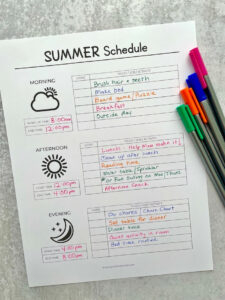 SUMMER Schedule
MORNING
Brush hair & teeth
Make bed
Board game / Puzzle
Breakfast
Outside play
8:00am
12:00pm
AFTERNOON
Lunch - Help Mom make it
Clean up after lunch
Reading time
Water table / Sprinkler
or Fun Outing on
12:00pm
4:00pm
Afternoon Snack
EVENING
Do chores / Chore Chart
Set table for dinner
Dinner time
Quiet activity in room
Bed time routine
4:00pm
8:00pm